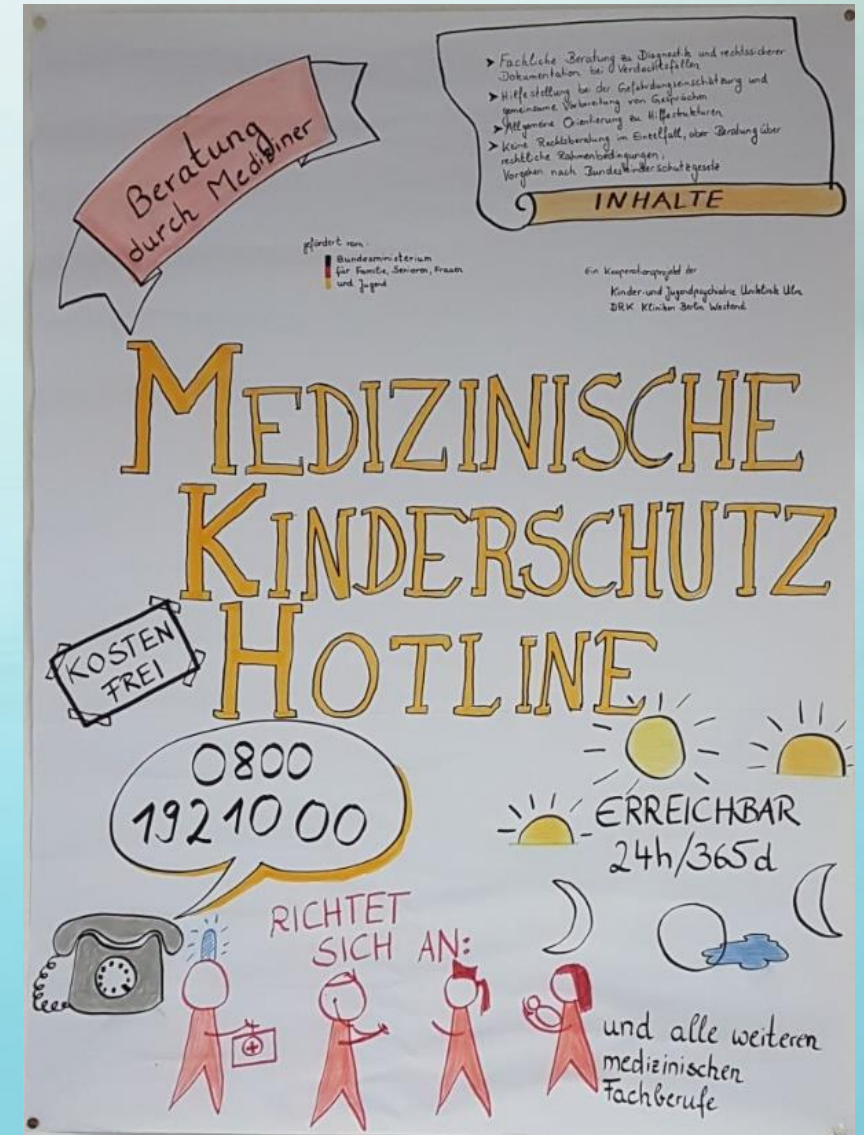 Beratung
durch Mediziner
➤ Fachliche Beratung zu Diagnostik und rechtssicherer
Dokumentation bei Verdachtsfällen
➤ Hilfestellung bei der Gefährdungseinschätzung und
gemeinsame Vorbereitung von Gesprächen
➤ Allgemeine Orientierung zu Hilfestrukturen
➤ Keine Rechtsberatung im Einzelfall, aber Beratung über
rechtliche Rahmenbedingungen,
Vorgehen nach Bundeskinderschutzgesetz
INHALTE
gefördert vom:
Bundesministerium
für Familie, Senioren, Frauen
und Jugend
Ein Kooperationsprojekt der
Kinder- und Jugendpsychiatrie Uniklinik Ulm
DRK Kliniken Berlin Westend
MEDIZINISCHE
KINDERSCHUTZ
HOTLINE
KOSTEN
FREI
0800
19 210 00
ERREICHBAR
24h/365d
RICHTET
SICH AN:
und alle weiteren
medizinischen
Fachberufe